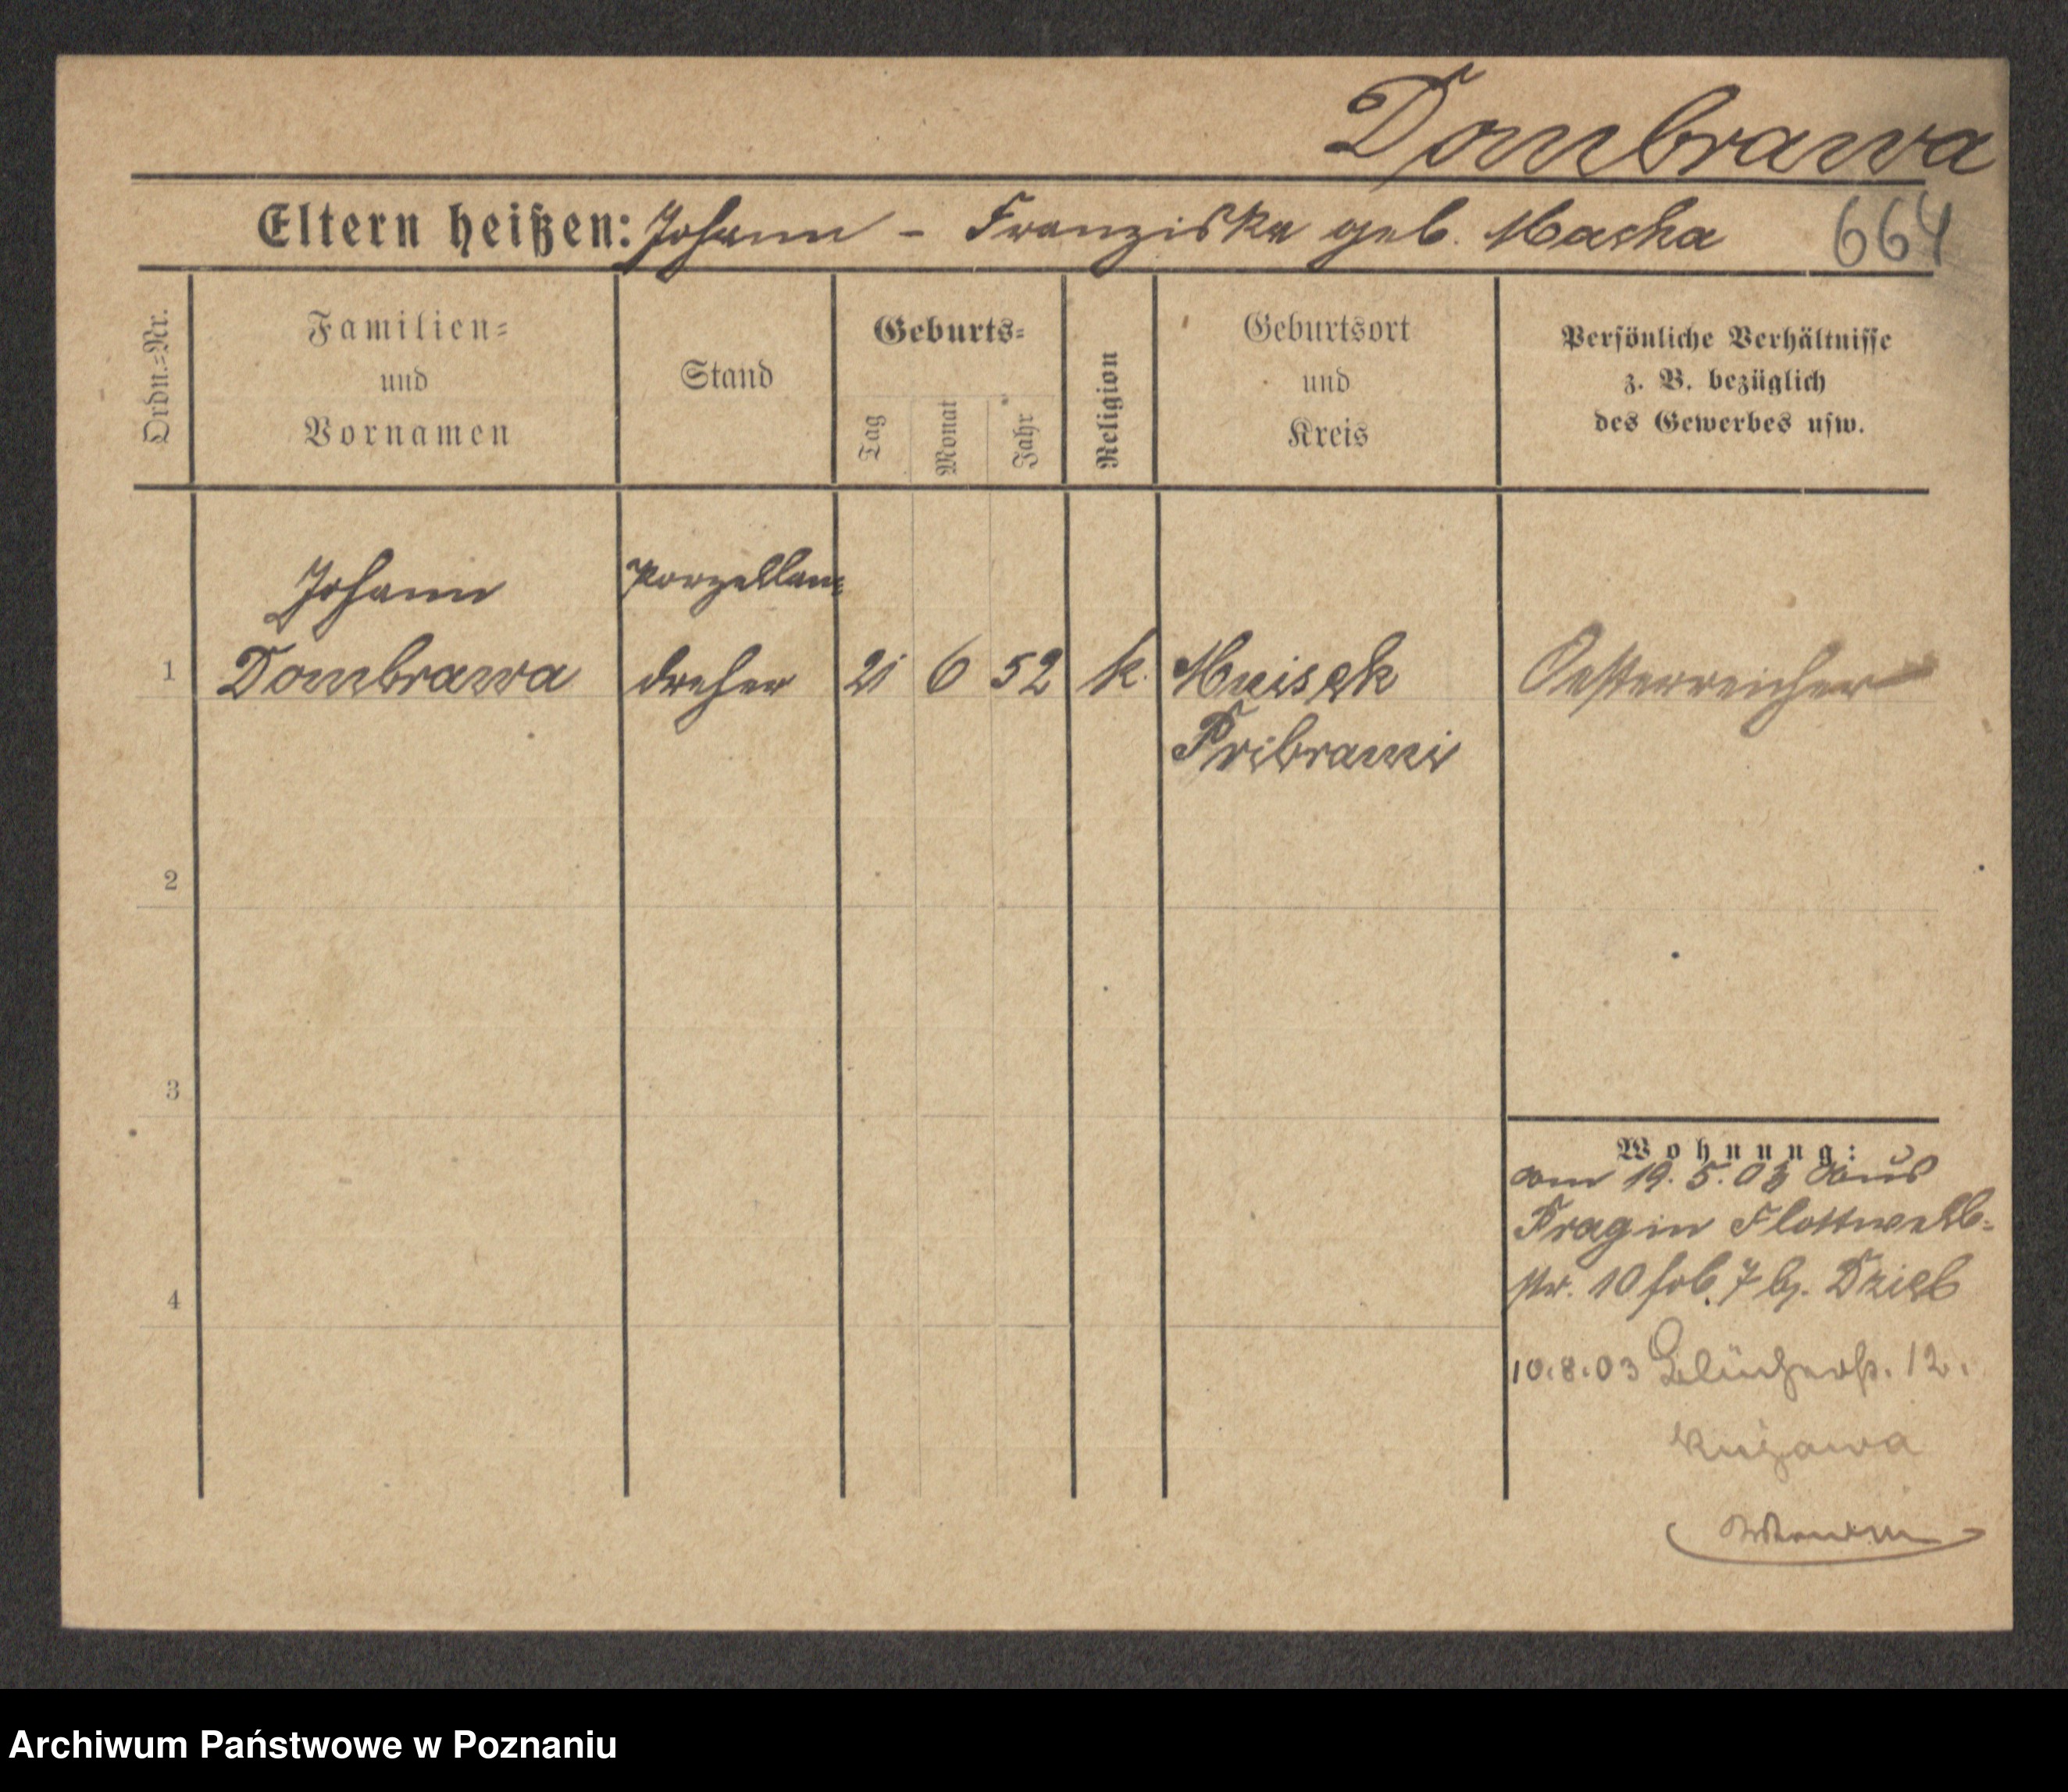 Dombrawa
Eltern heißen: Johann - Franziska geb. Macha
664
Ordn.=Nr.
Familien=
und
Vornamen
Stand
Geburts=
Tag
Monat
Jahr
Religion
Geburtsort
und
Kreis
Persönliche Verhältnisse
z. B. bezüglich
des Gewerbes usw.
Johann
Porzellan=
1 Dombrawa dreher 21 6 52 k. Oesterreicher
Pribram
2
3
4
Wohnung:
am 19.5.03 aus
Prag in Flottwell=
str. 10
10.8.03 Blücherstr. 12.
Kujawa
Archiwum Państwowe w Poznaniu